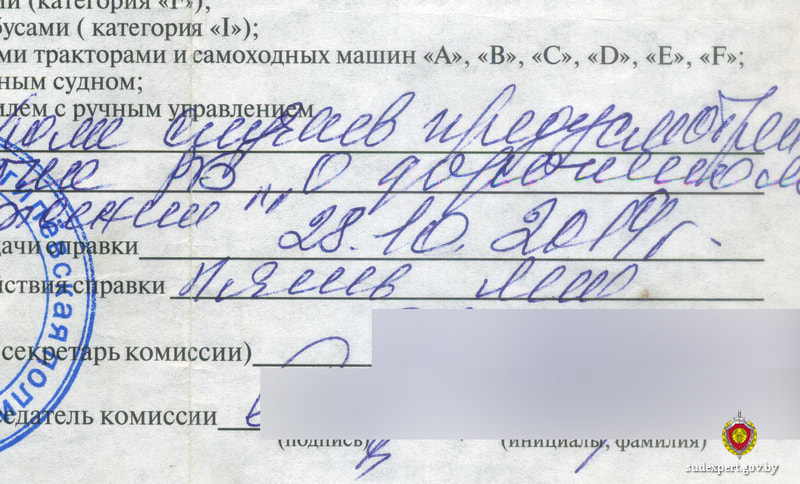 ми (категория «F»);
бусами ( категория «I»);
ыми тракторами и самоходных машин «А», «В», «С», «D», «Е», «F»;
ным судном;
илем с ручным управлением
роме случаев предусмотрен
РБ „О дорожном
движении"
дачи справки 28.10.2014г.
йствия справки пять лет
секретарь комиссии)
седатель комиссии
(подпись) (инициалы, фамилия)
гилёвская поли
sudexpert.gov.by